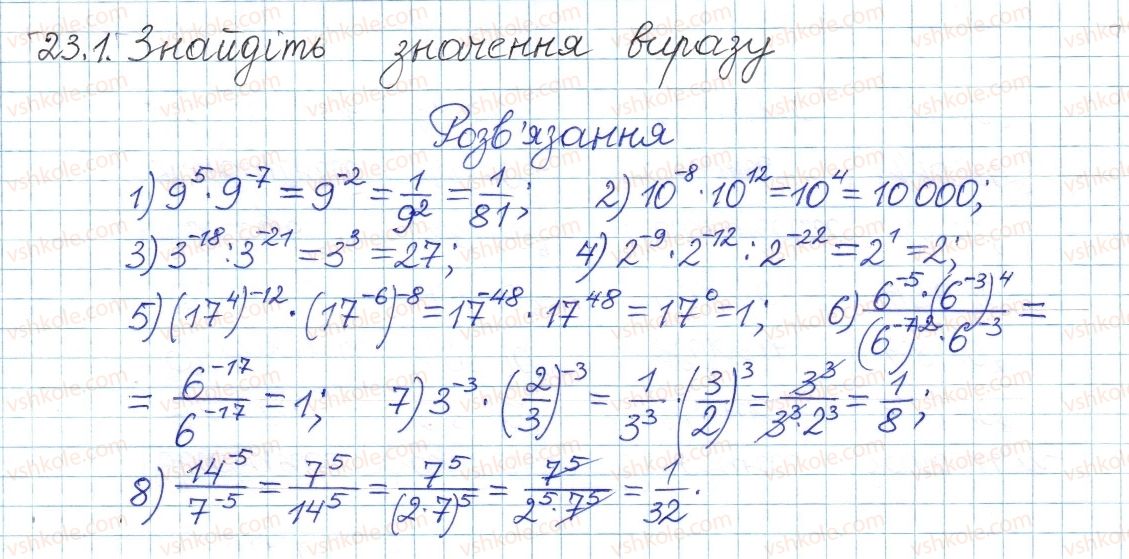 23.1. Знайдіть значення виразу
Розв'язання
1) 9^5 · 9^-7 = 9^-2 = 1/9^2 = 1/81; 2) 10^-8 · 10^12 = 10^4 = 10 000;
3) 3^-18 : 3^-21 = 3^3 = 27; 4) 2^-9 · 2^-12 : 2^-22 = 2^1 = 2;
5) (17^4)^-12 · (17^-6)^-8 = 17^-48 · 17^48 = 17^0 = 1; 6) (6^-5 · (6^-3)^4)/((6^-7)^2 · 6^-3) =
= 6^-17/6^-17 = 1; 7) 3^-3 · (2/3)^-3 = 1/3^3 · (3/2)^3 = 3^3/(3^3 · 2^3) = 1/8;
8) 14^-5/7^-5 = 7^5/14^5 = 7^5/(2 · 7)^5 = 7^5/(2^5 · 7^5) = 1/32.
vshkole.com